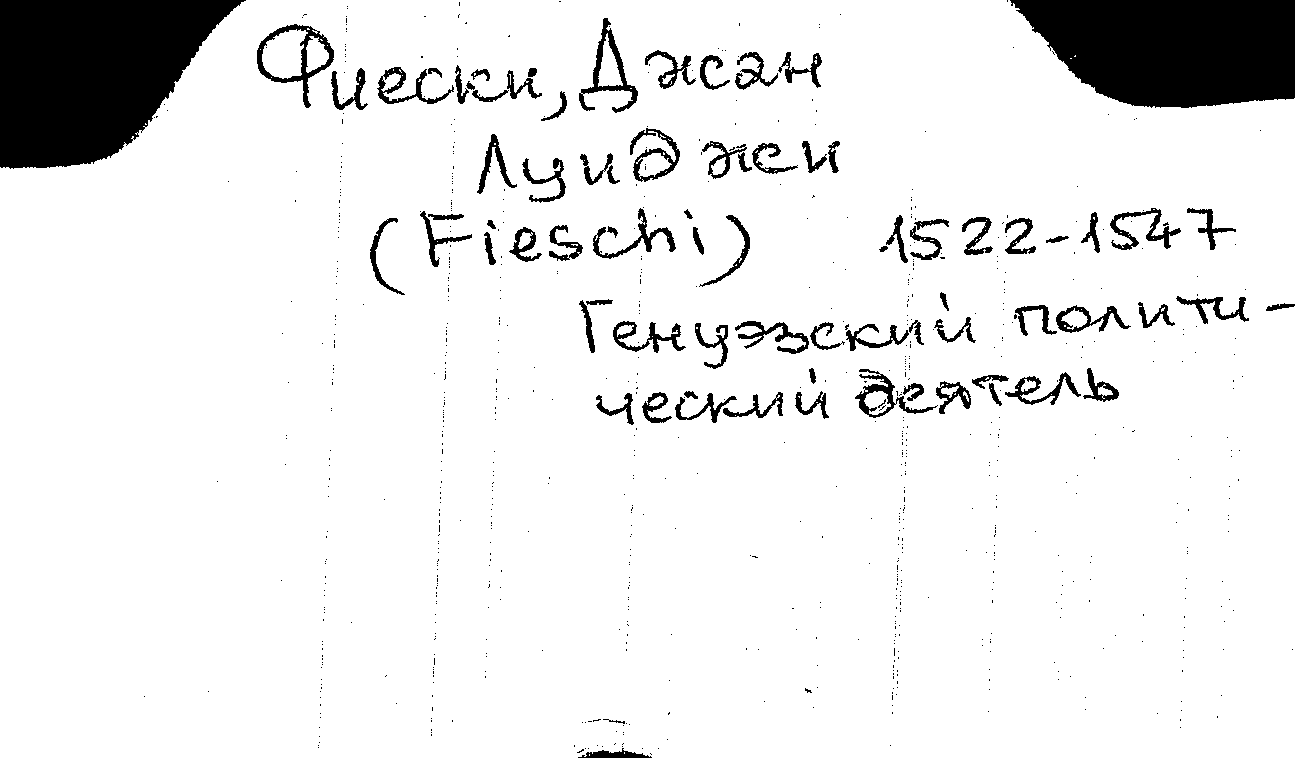 Фиески, Джан
Луиджи
(Fieschi) 1522-1547
Генуэзский полити-
ческий деятель